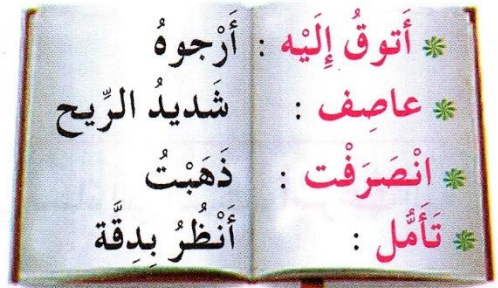 أَتوقُ إِلَيْه : أَرْجوهُ
عاصِف : شَديدُ الرِّيح
انْصَرَفْت : ذَهَبْتُ
تَأَمُّل : أَنْظُرُ بِدِقَّة